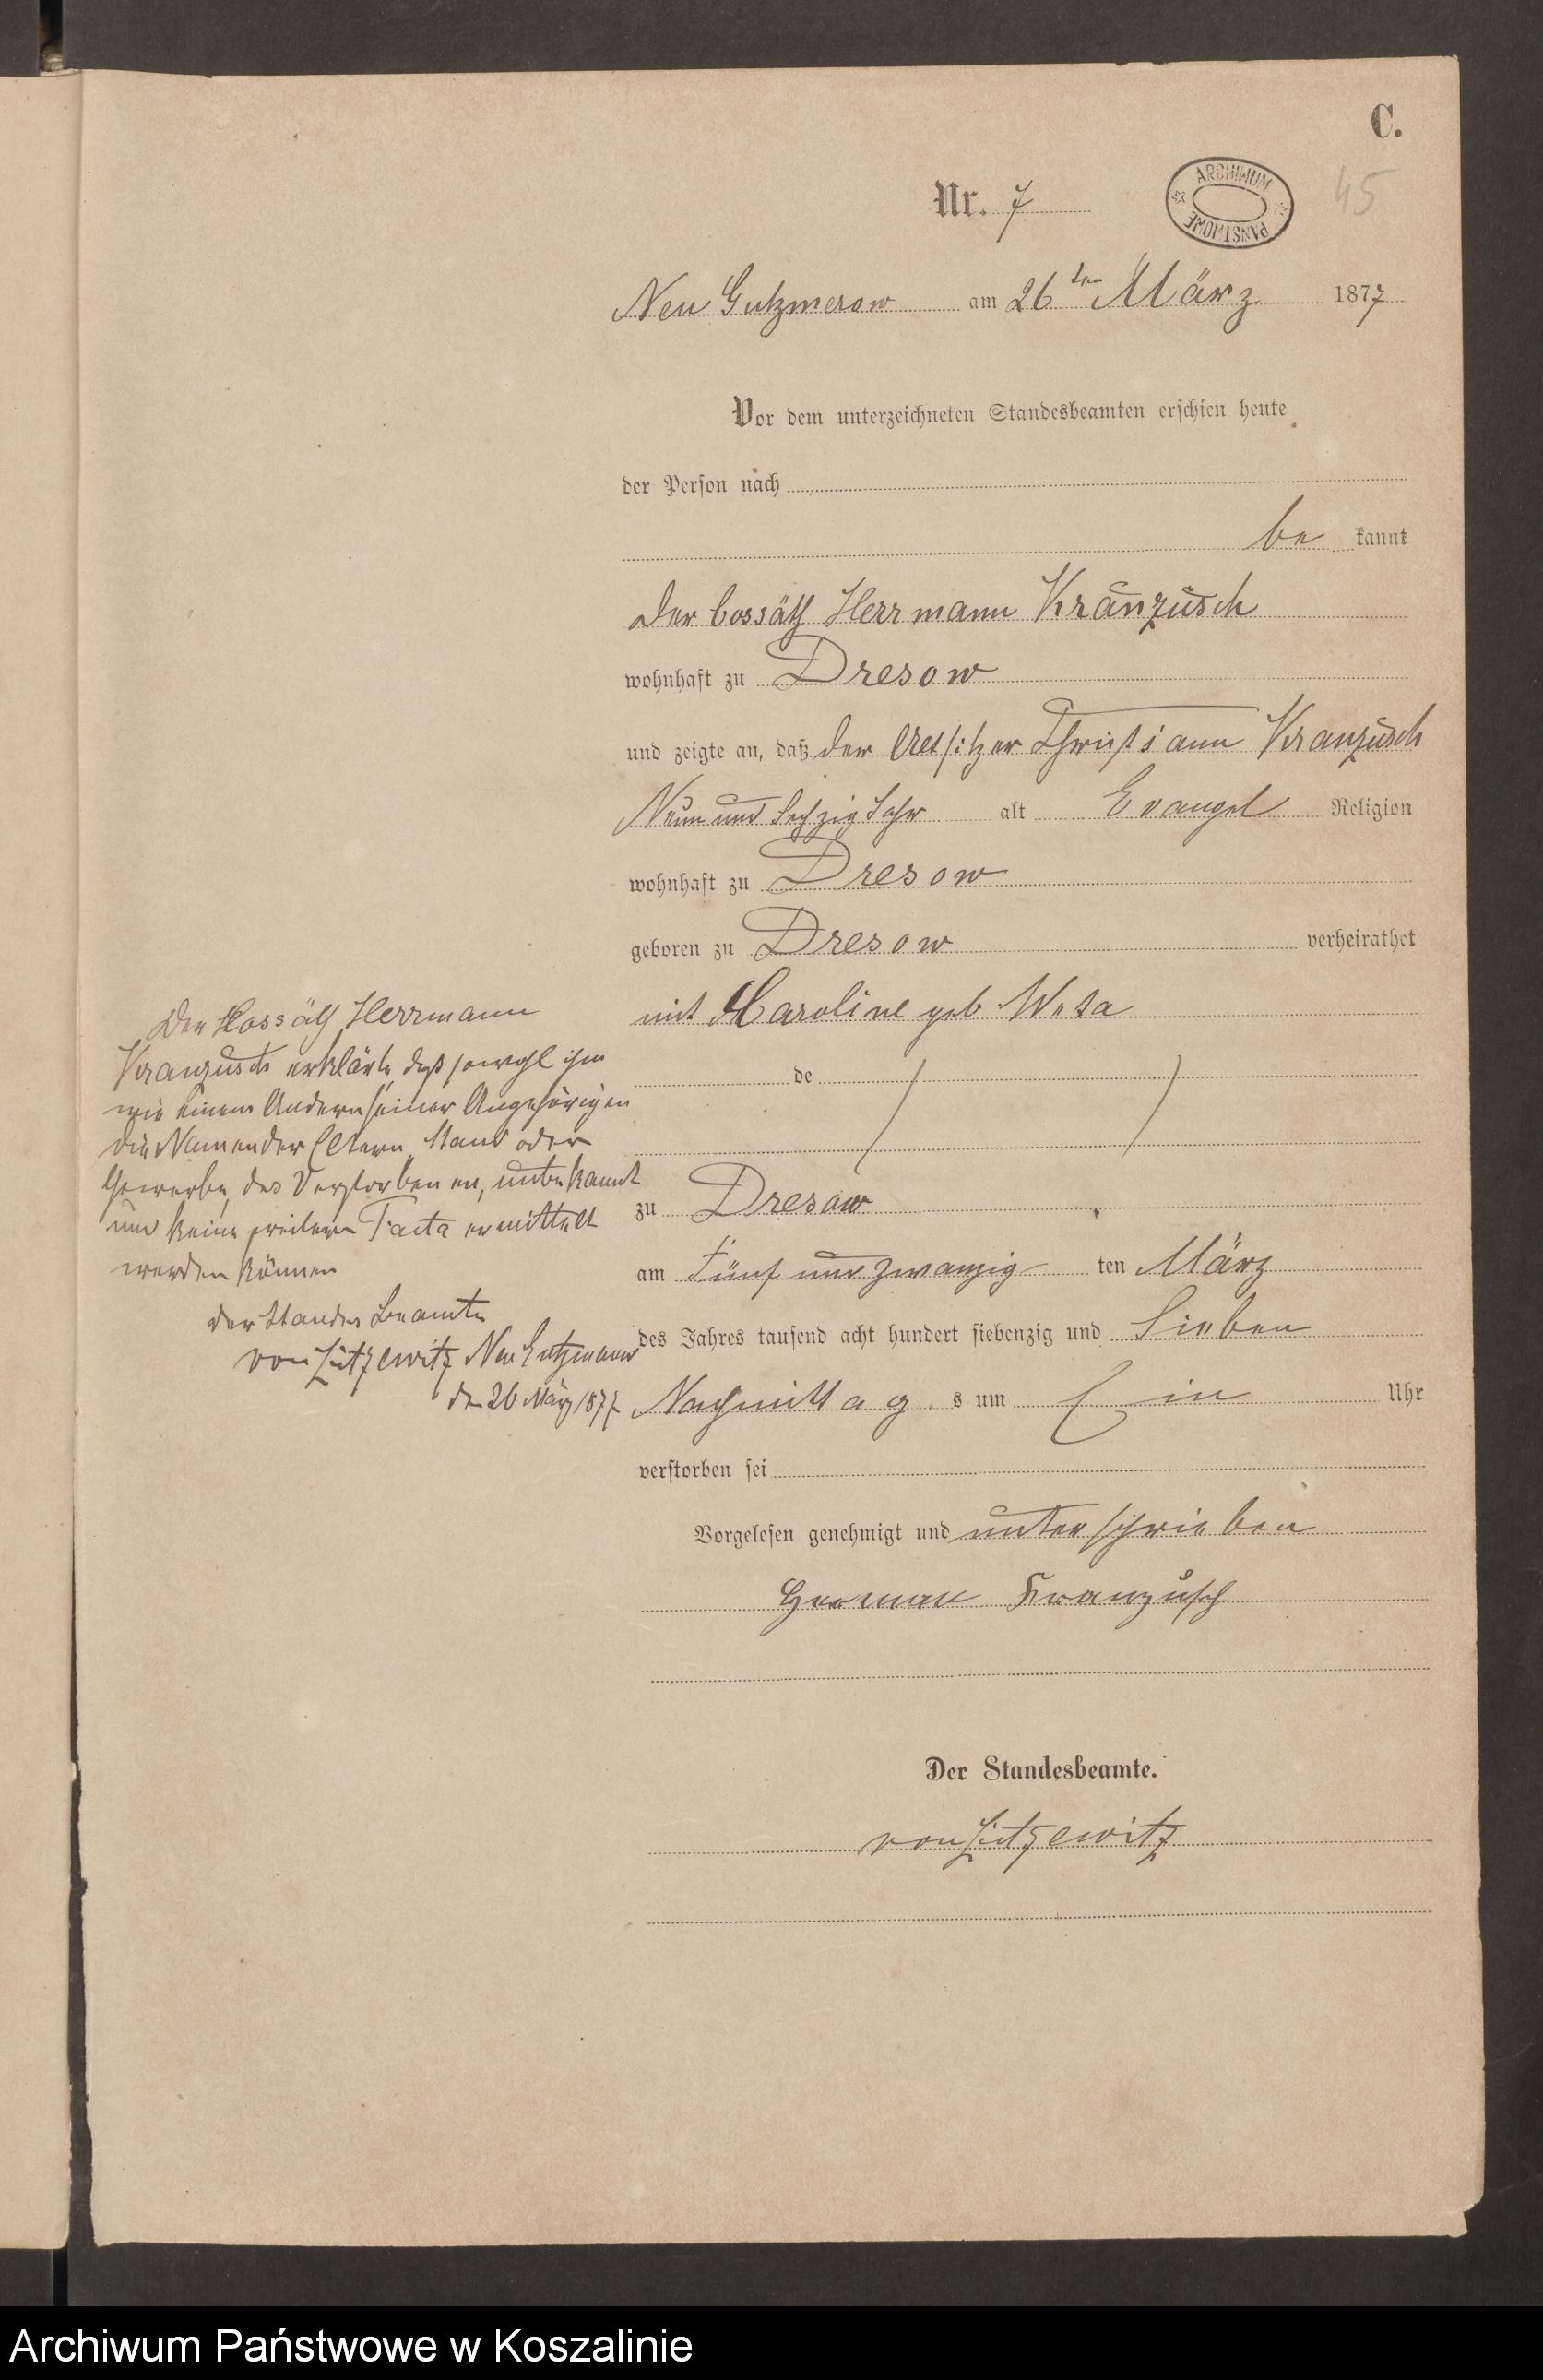 C.
Nr. 7
ARCHIWUM PAŃSTWOWE
45
Neu Gutzmerow am 26ten März 1877
Vor dem unterzeichneten Standesbeamten erschien heute
der Person nach
be kannt
der Cossäth Herrmann Kranzusch
wohnhaft zu Dresow
und zeigte an, daß der Altsitzer Christiann Kranzusch
Neun und Sechzig Jahr alt Evangel Religion
wohnhaft zu Dresow
geboren zu Dresow verheirathet
mit Caroline geb
de
zu Dresow
am Fünf und zwanzig ten März
des Jahres tausend acht hundert siebenzig und Sieben
Nachmittag s um Ein Uhr
verstorben sei
Vorgelesen genehmigt und unterschrieben
Herman Kranzusch
Der Standesbeamte.
von Zitzewitz
Der Kossäth Herrmann
Kranzusch erklärte daß sowohl ihm
wie einem Andern seiner Angehörigen
die Namen der Eltern, Stand oder
Gewerbe, des Verstorbenen, unbekannt
und keine weitern Facta ermittelt
werden können
Der Standes Beamte
von Zitzewitz Neu Gutzmerow
den 26 März 1877
Archiwum Państwowe w Koszalinie